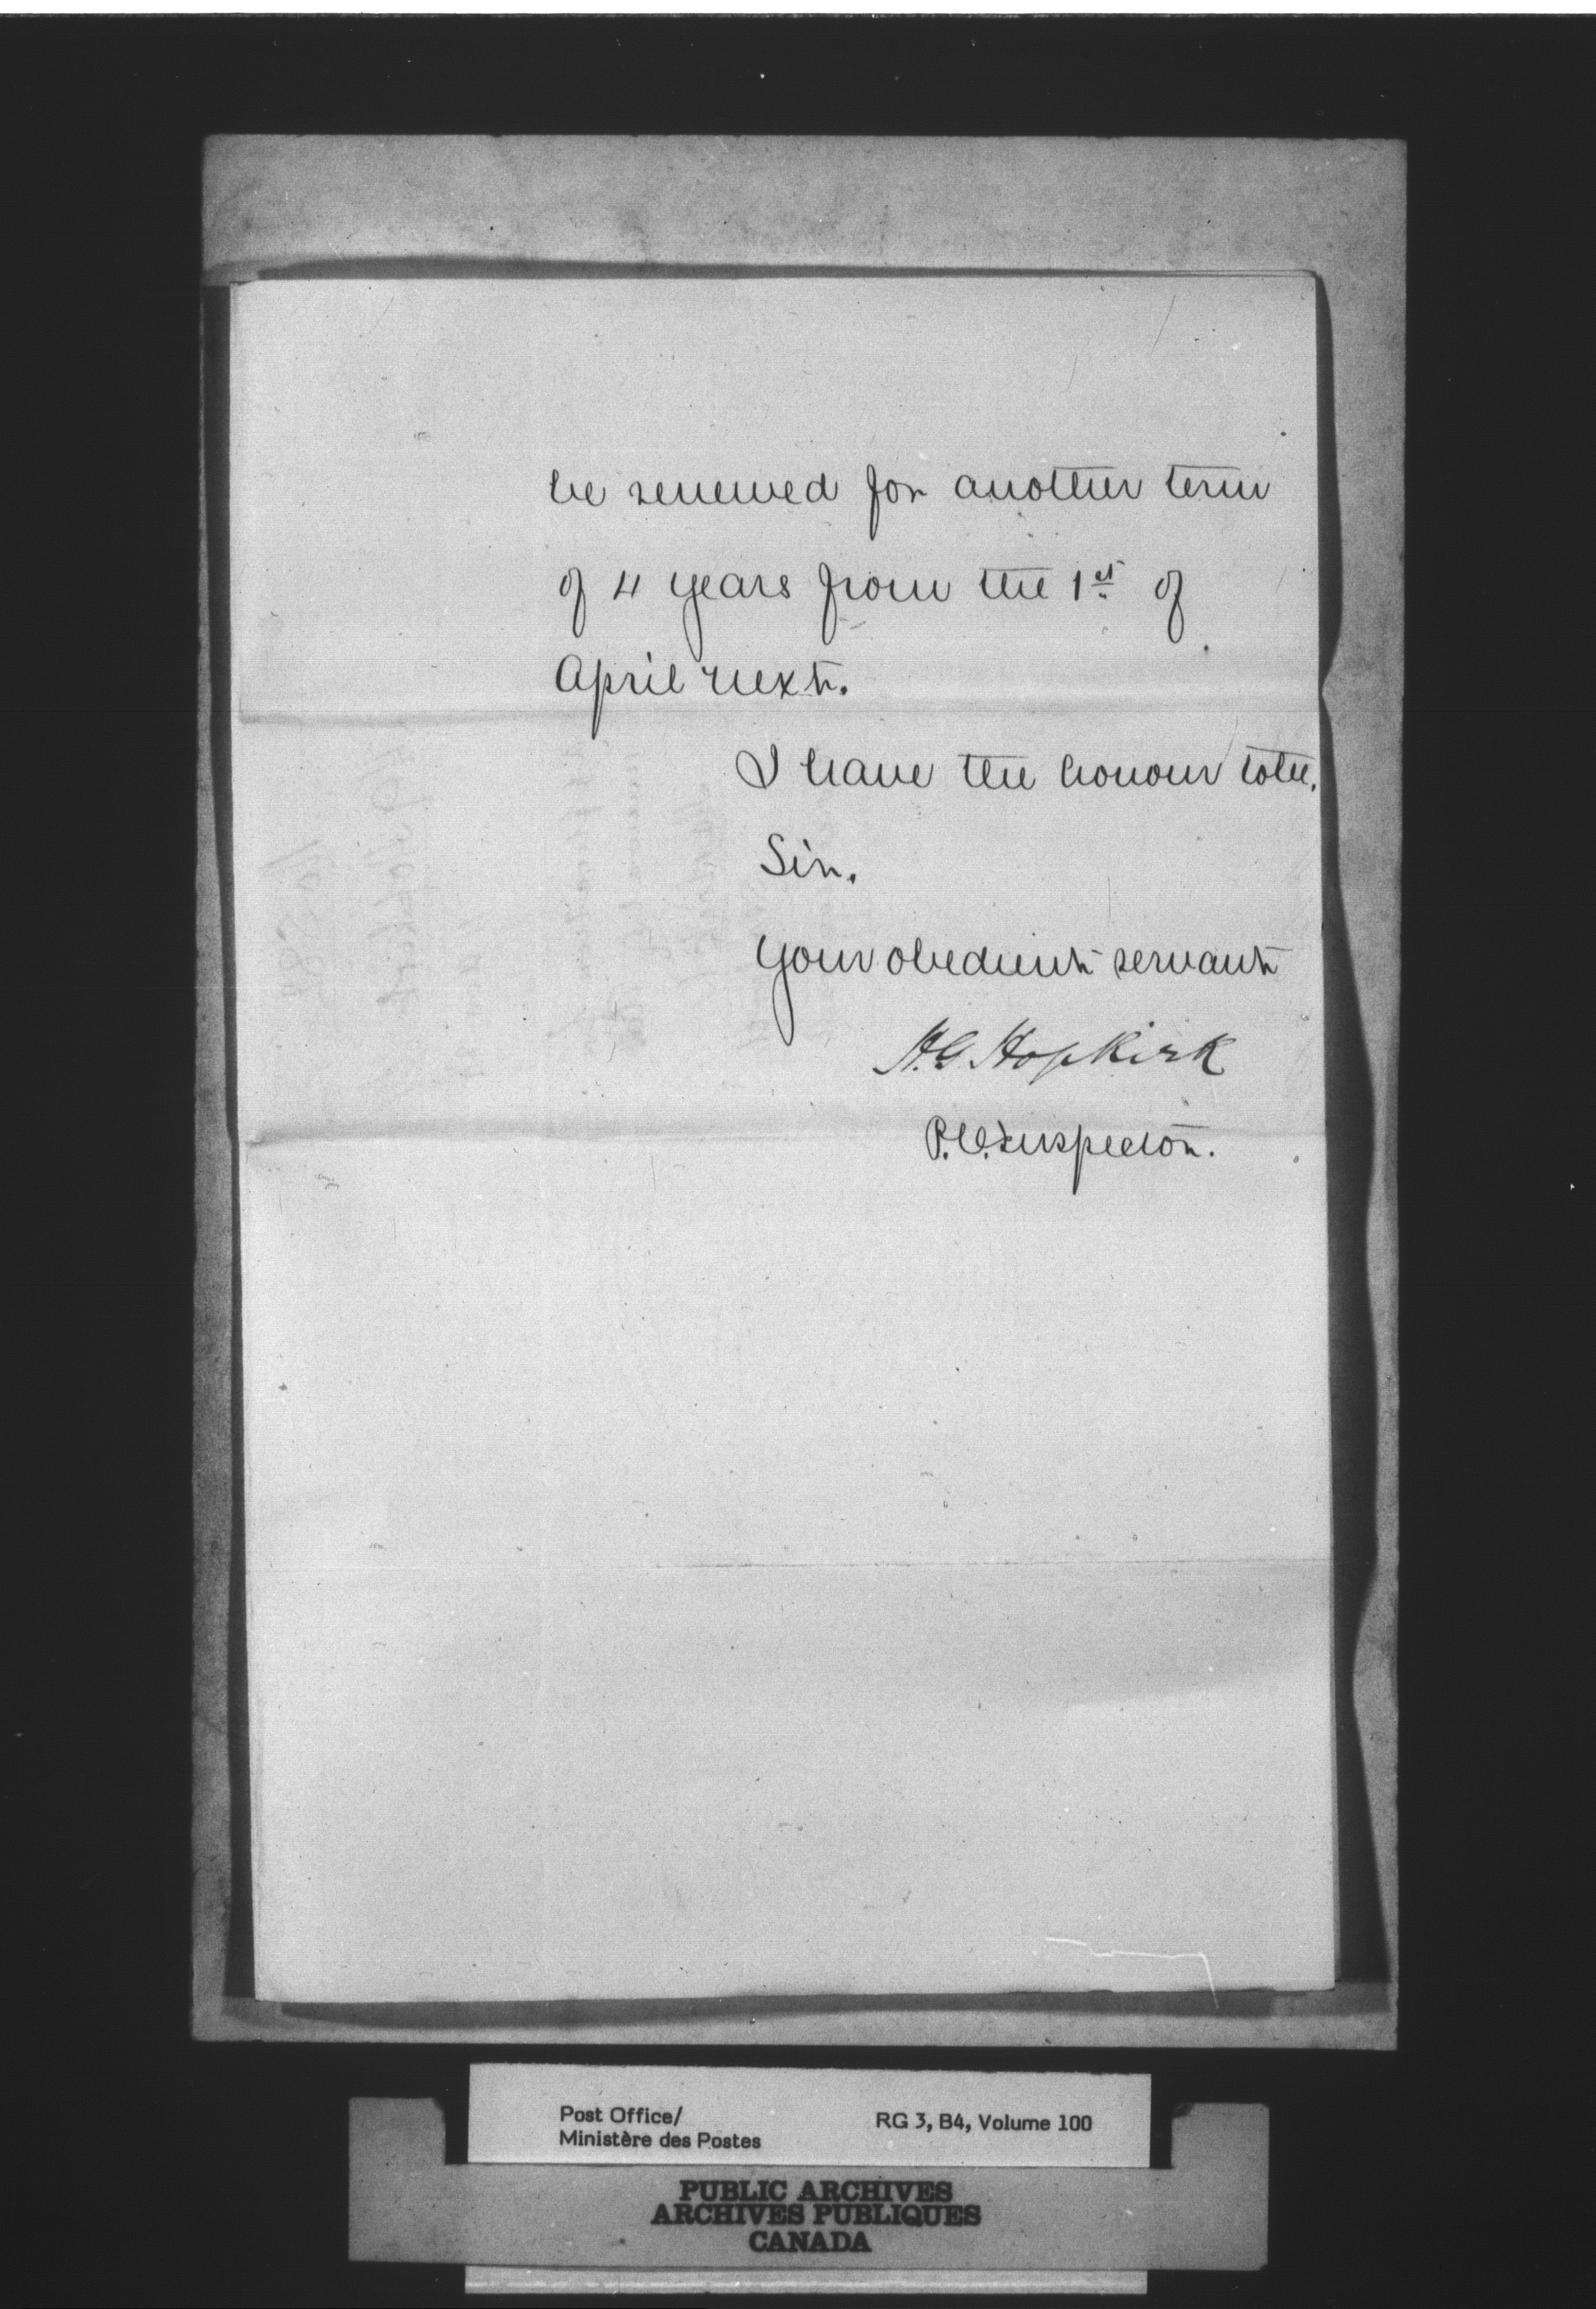 be renewed for another term
of 4 years from the 1st of
April next.
I have the honour to be,
Sir.
Your obedient servant
H.G. Hopkirk
P.O. Inspector.
Post Office/
Ministère des Postes
RG 3, B4, Volume 100
PUBLIC ARCHIVES
ARCHIVES PUBLIQUES
CANADA